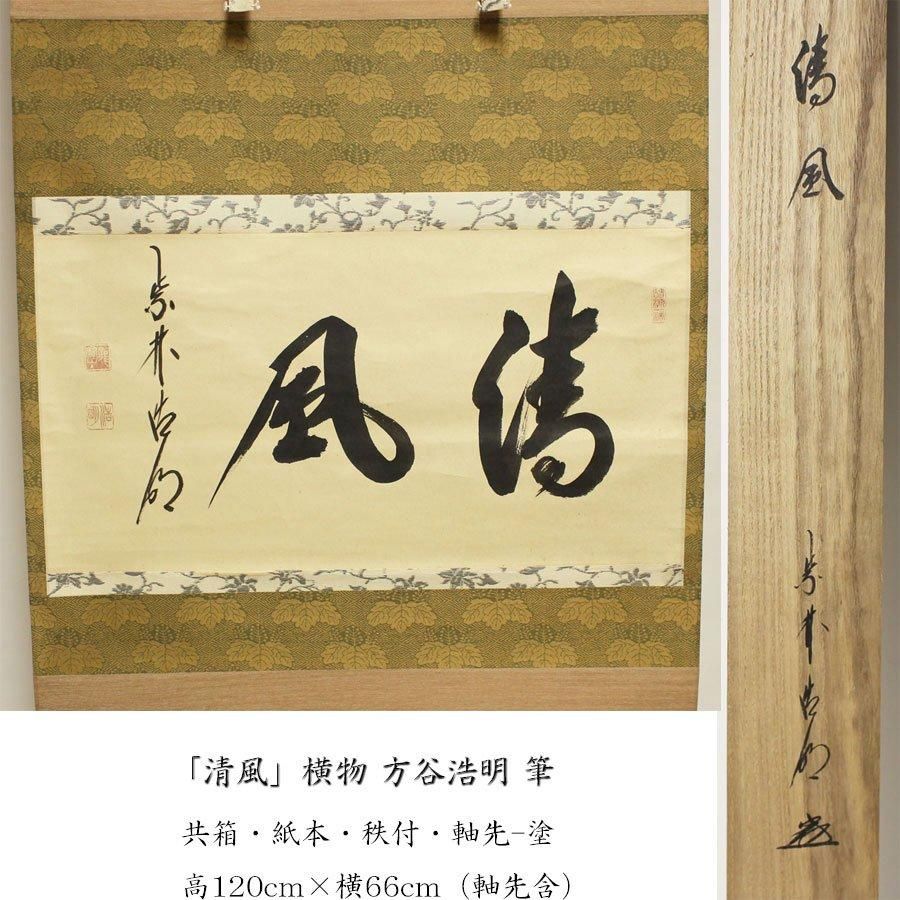 清風
紫林浩明
清
風
紫林浩明
「清風」横物 方谷浩明 筆
共箱・紙本・秩付・軸先−塗
高120cm×横66cm（軸先含）